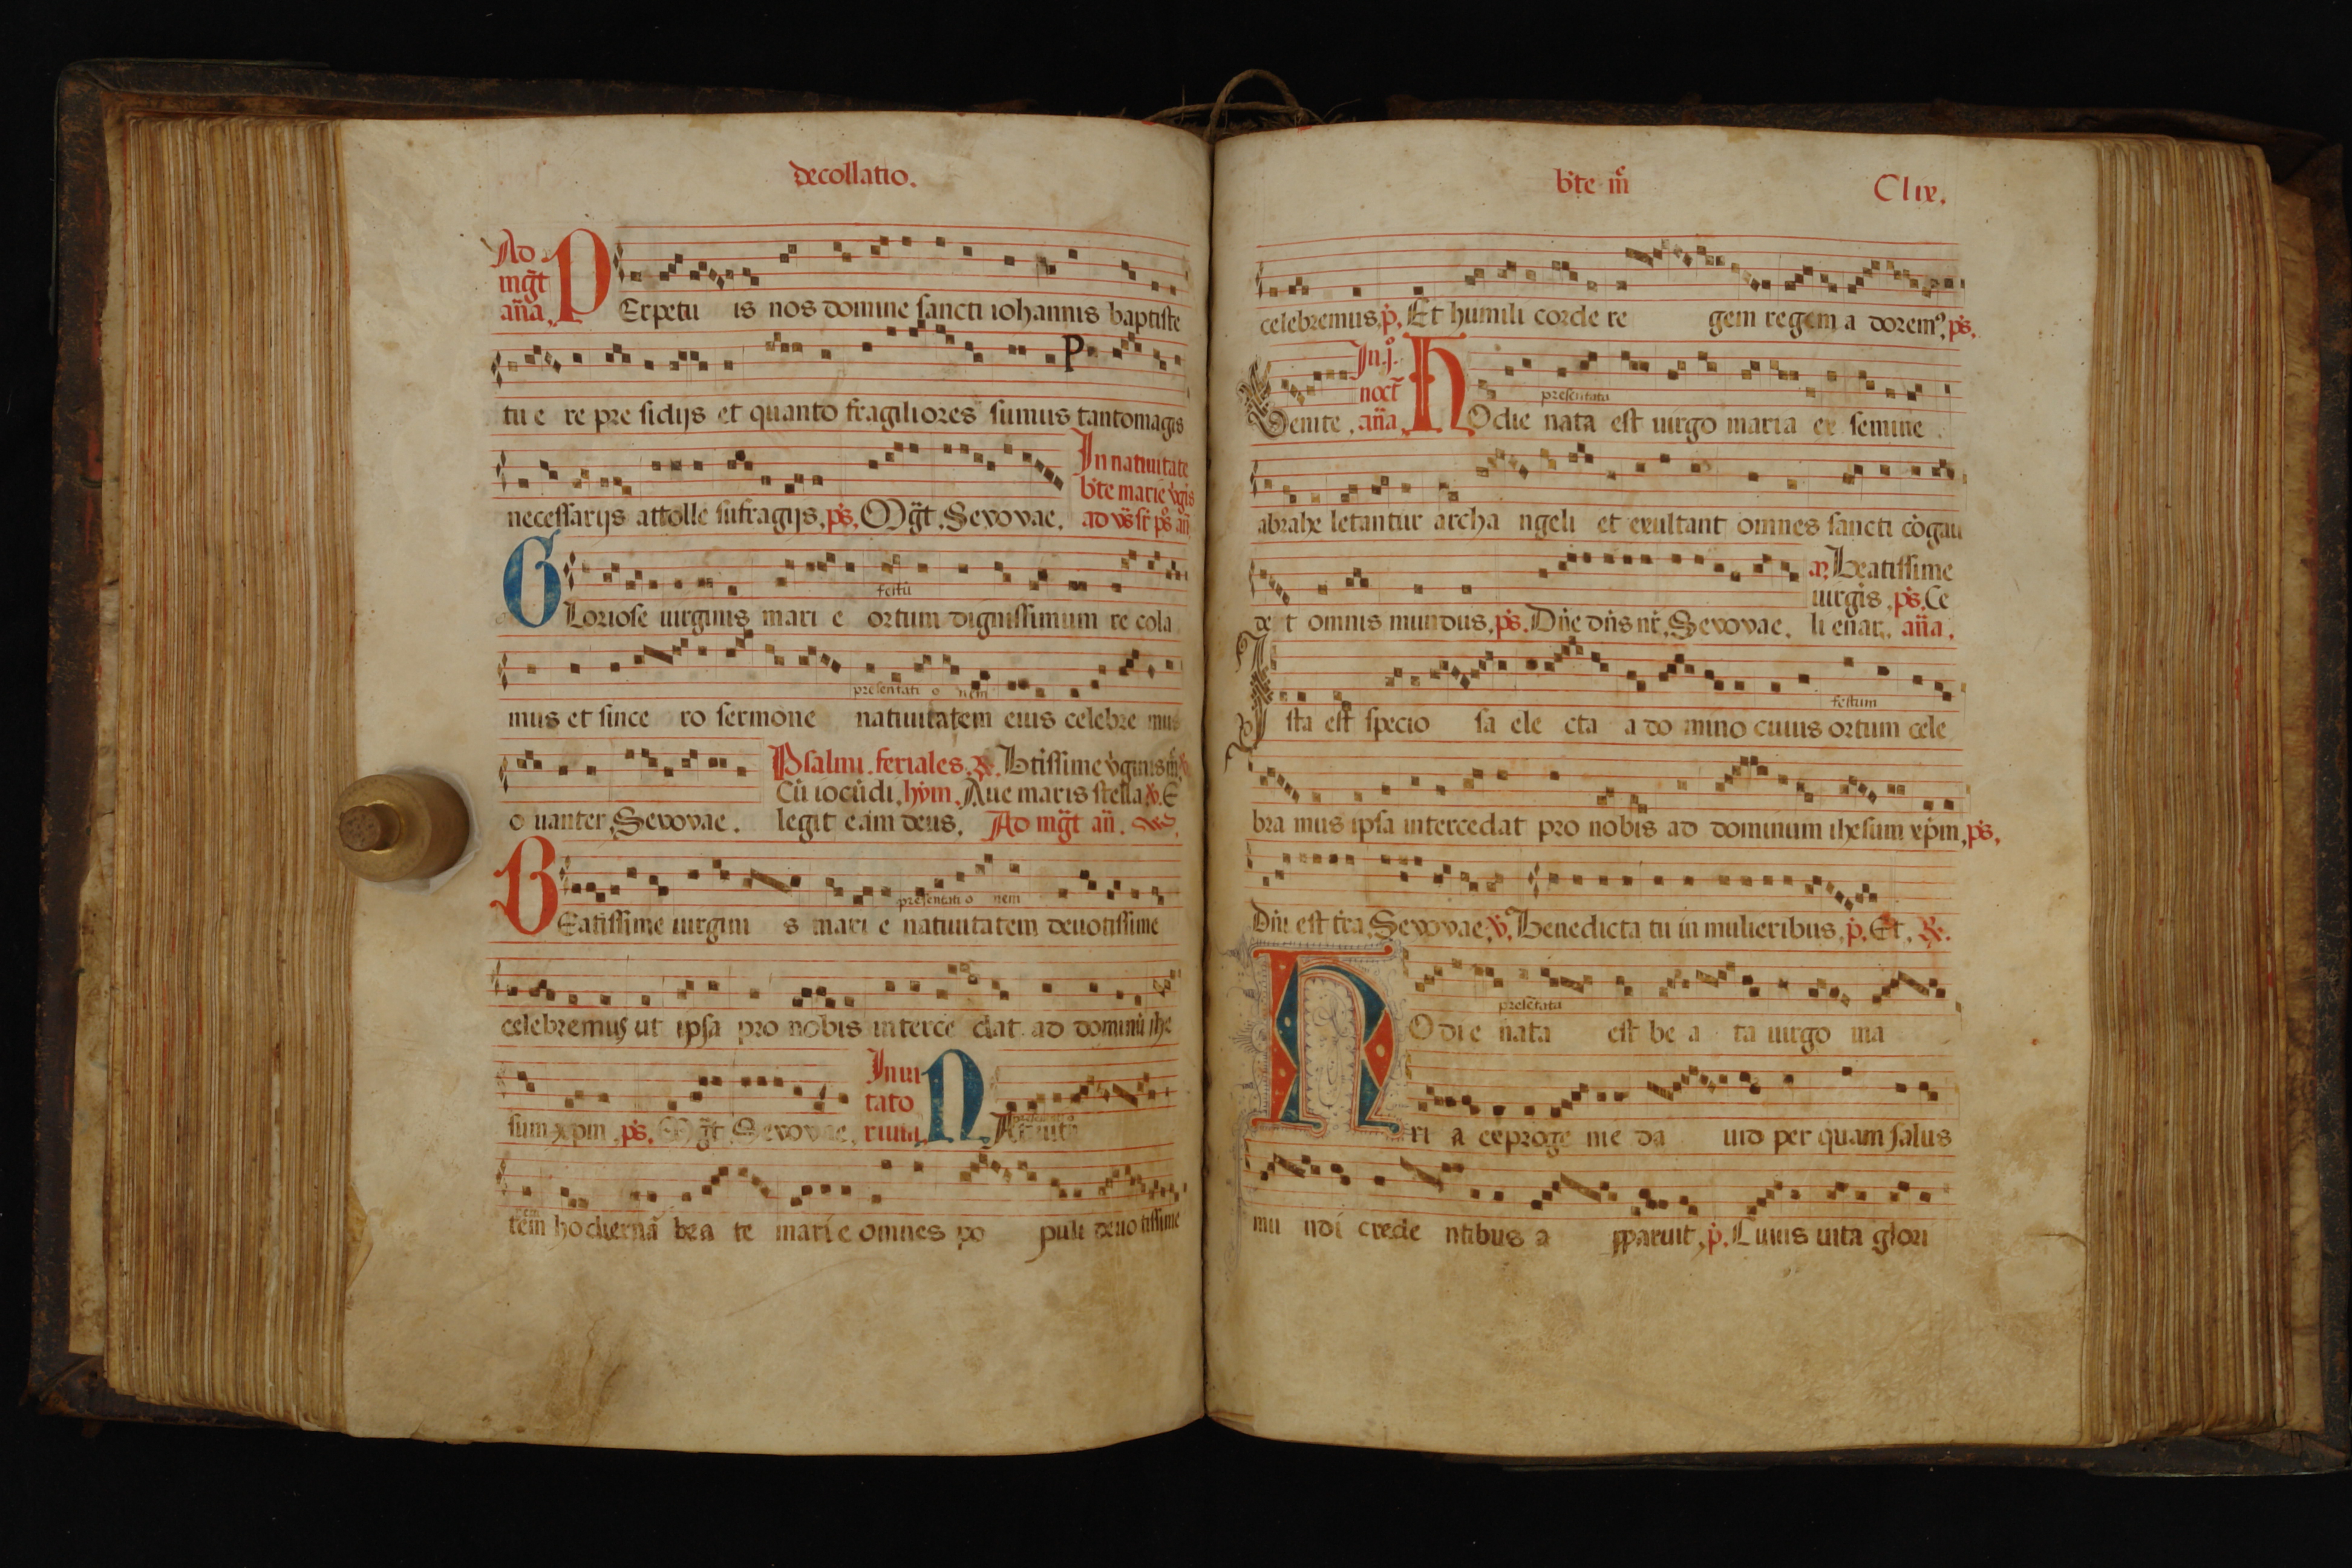 decollatio.
Ad
mg̃t
an̄a.
PErpetu is nos domine sancti iohannis baptiste
tu e re pre sidijs et quanto fragiliores sumus tantomagis
necessarijs attolle sufragijs. ps. Mg̃t. Sevovae.
In natiuitate
bt̄e marie v̄gis
ad vs̄t ps an̄
festū
GLoriose uirginis mari e ortum dignissimum re cola
presentati o nem
mus et since ro sermone natiuitatem eius celebre mus
Psalmi. feriales. R. Btissime v̄ginis m̄
Cū iocūdi. hym. Aue maris stella. v. E
o uanter. Sevovae. legit eam deus. Ad mg̃t an̄.
presentati o nem
BEatissime uirgini s mari e natiuitatem deuotissime
celebremus ut ipsa pro nobis interce dat ad dominū ihe
Inui
tato
rium.
sum xp̄m. ps. Mg̃t. Sevovae. N
nem
tem hodiernā bea te mari e omnes po puli deuotissime
bt̄e m̄
Clix.
celebremus. p. Et humili corde re gem regem a dorem9. ps.
In. j.
noct̄
presentata
Venite. an̄a. HOdie nata est uirgo maria ex semine
abrahe letantur archa ngeli et exultant omnes sancti cōgau
Beatissime
uirgis. ps. Ce
de t omnis mundus. ps. Dn̄e dn̄s nr̄. Sevovae. li enar. an̄a.
festum
Ista est specio sa ele cta a do mino cuius ortum cele
bra mus ipsa intercedat pro nobis ad dominum ihesum xp̄m. ps.
Dn̄i est tr̄a. Sevovae. v. Benedicta tu in mulieribus. p. Et. R.
presētata
HOdi e nata est be a ta uirgo ma
ri a exproge nie da uid per quam salus
mu ndi crede ntibus a pparuit. p. Cuius uita glori